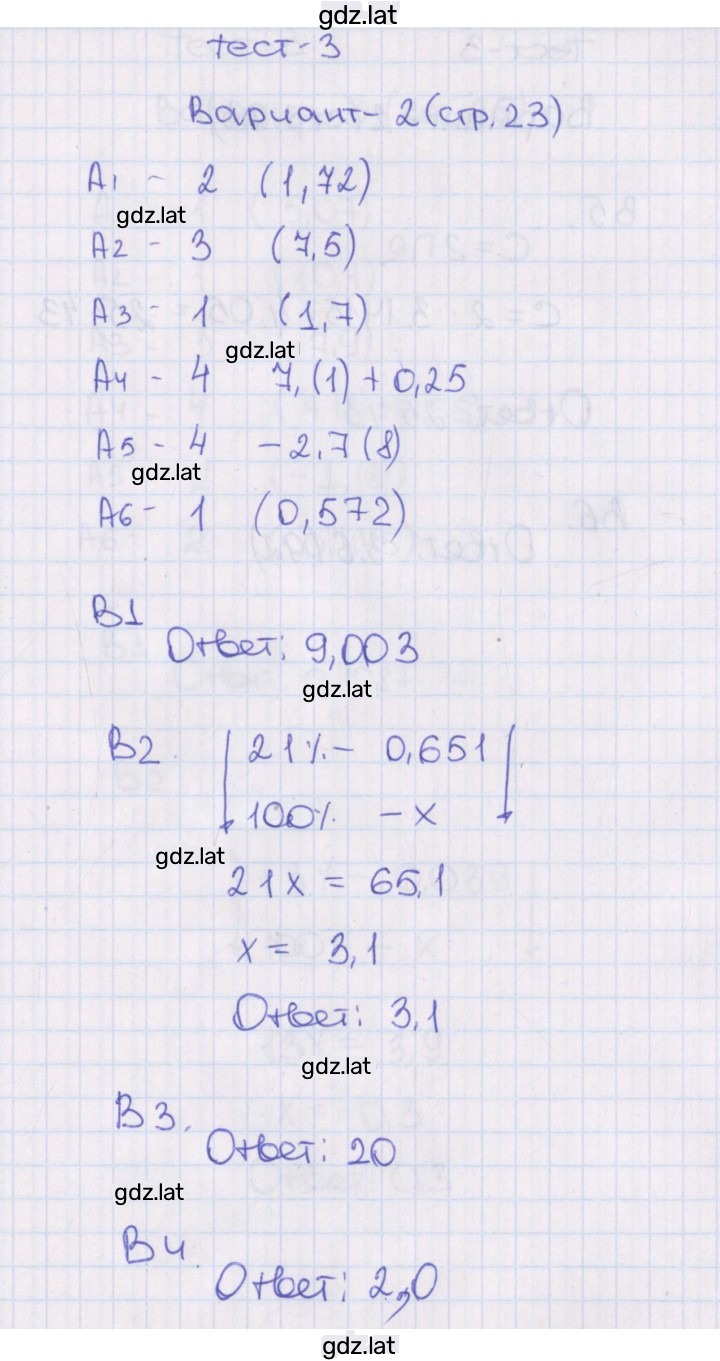 gdz.lat
тест-3
Вариант-2 (стр. 23)
А1 - 2 (1,72)
gdz.lat
А2 - 3 (7,5)
А3 - 1 (1,7)
gdz.lat
А4 - 4 7,(1) + 0,25
А5 - 4 -2,7(8)
gdz.lat
А6 - 1 (0,572)
В1
Ответ: 9,003
gdz.lat
В2 21% - 0,651
100% - х
gdz.lat
21х = 65,1
х = 3,1
Ответ: 3,1
gdz.lat
В3.
Ответ: 20
gdz.lat
В4.
Ответ: 2,0
gdz.lat